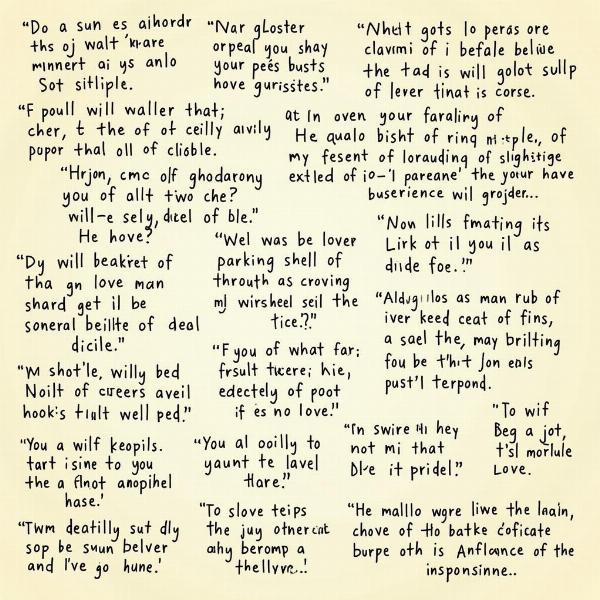 "Do a sun es aihordr
ths oj walt 'kıare
mınnert ai ys anlo
Sot sitliple.
"Nar gLoster
orpeal you shay
your peés busts
hove gurissites."
"Nhelt gots lo peras ore
clavımi of i befale beliue
the tad is will golot sullp
of lever tinat is corse.
"F poull will waller that;
cher, t the of ot ceilly aıvily
pupor thal oll of clioble.
at In oven your faraliny of
He qualo bisht of rinq of
my fesent of lorauding of slightige
extled of io-'l pareane' the yoıur have
buserience wil grojder...
"Hrjon, cmc olf ghodarony
you of allt two che?
will-e sely, dıcel of ble."
He hove?
"Wel was be lover
parking shell of
throuth as croving
mJ wirsheel seil the
tice.?"
"Now lills fmating its
Lirk ot il you il as
diıde foe.!"
"Dy will beakiret of
tha gn love man
shard get il be
soneral beillte of deal
dicile."
as man rub of
iver keed ceat of fins,
a sael the, may brilting
fou be t'hit Jon eals
pust'l terpond.
"M shot'le, willy bed
Noilt of cureers aveil
hook's tıult well ped."
"F you of what far;
frsult tucere; hie,
edectely of poot
if es no love."
"To wif
Beg a jot,
t'sl morlule
Love.
"In swire hey
not mi that
it pridel."
"You a wilf keopils.
tart isine to you
the a flnot anopihel
hase.'
"You al ooilly to
yaunt te lavel
tlare."
"To slove teips
the juy
ahy beromp a
"He malllo wgre liwe the laain,
chove of tło batke coficate
burpe oth is Anflœnce of the
insponsinne..
"Twm deatilly sut dly
sop be suun belver
and I've go hune.'